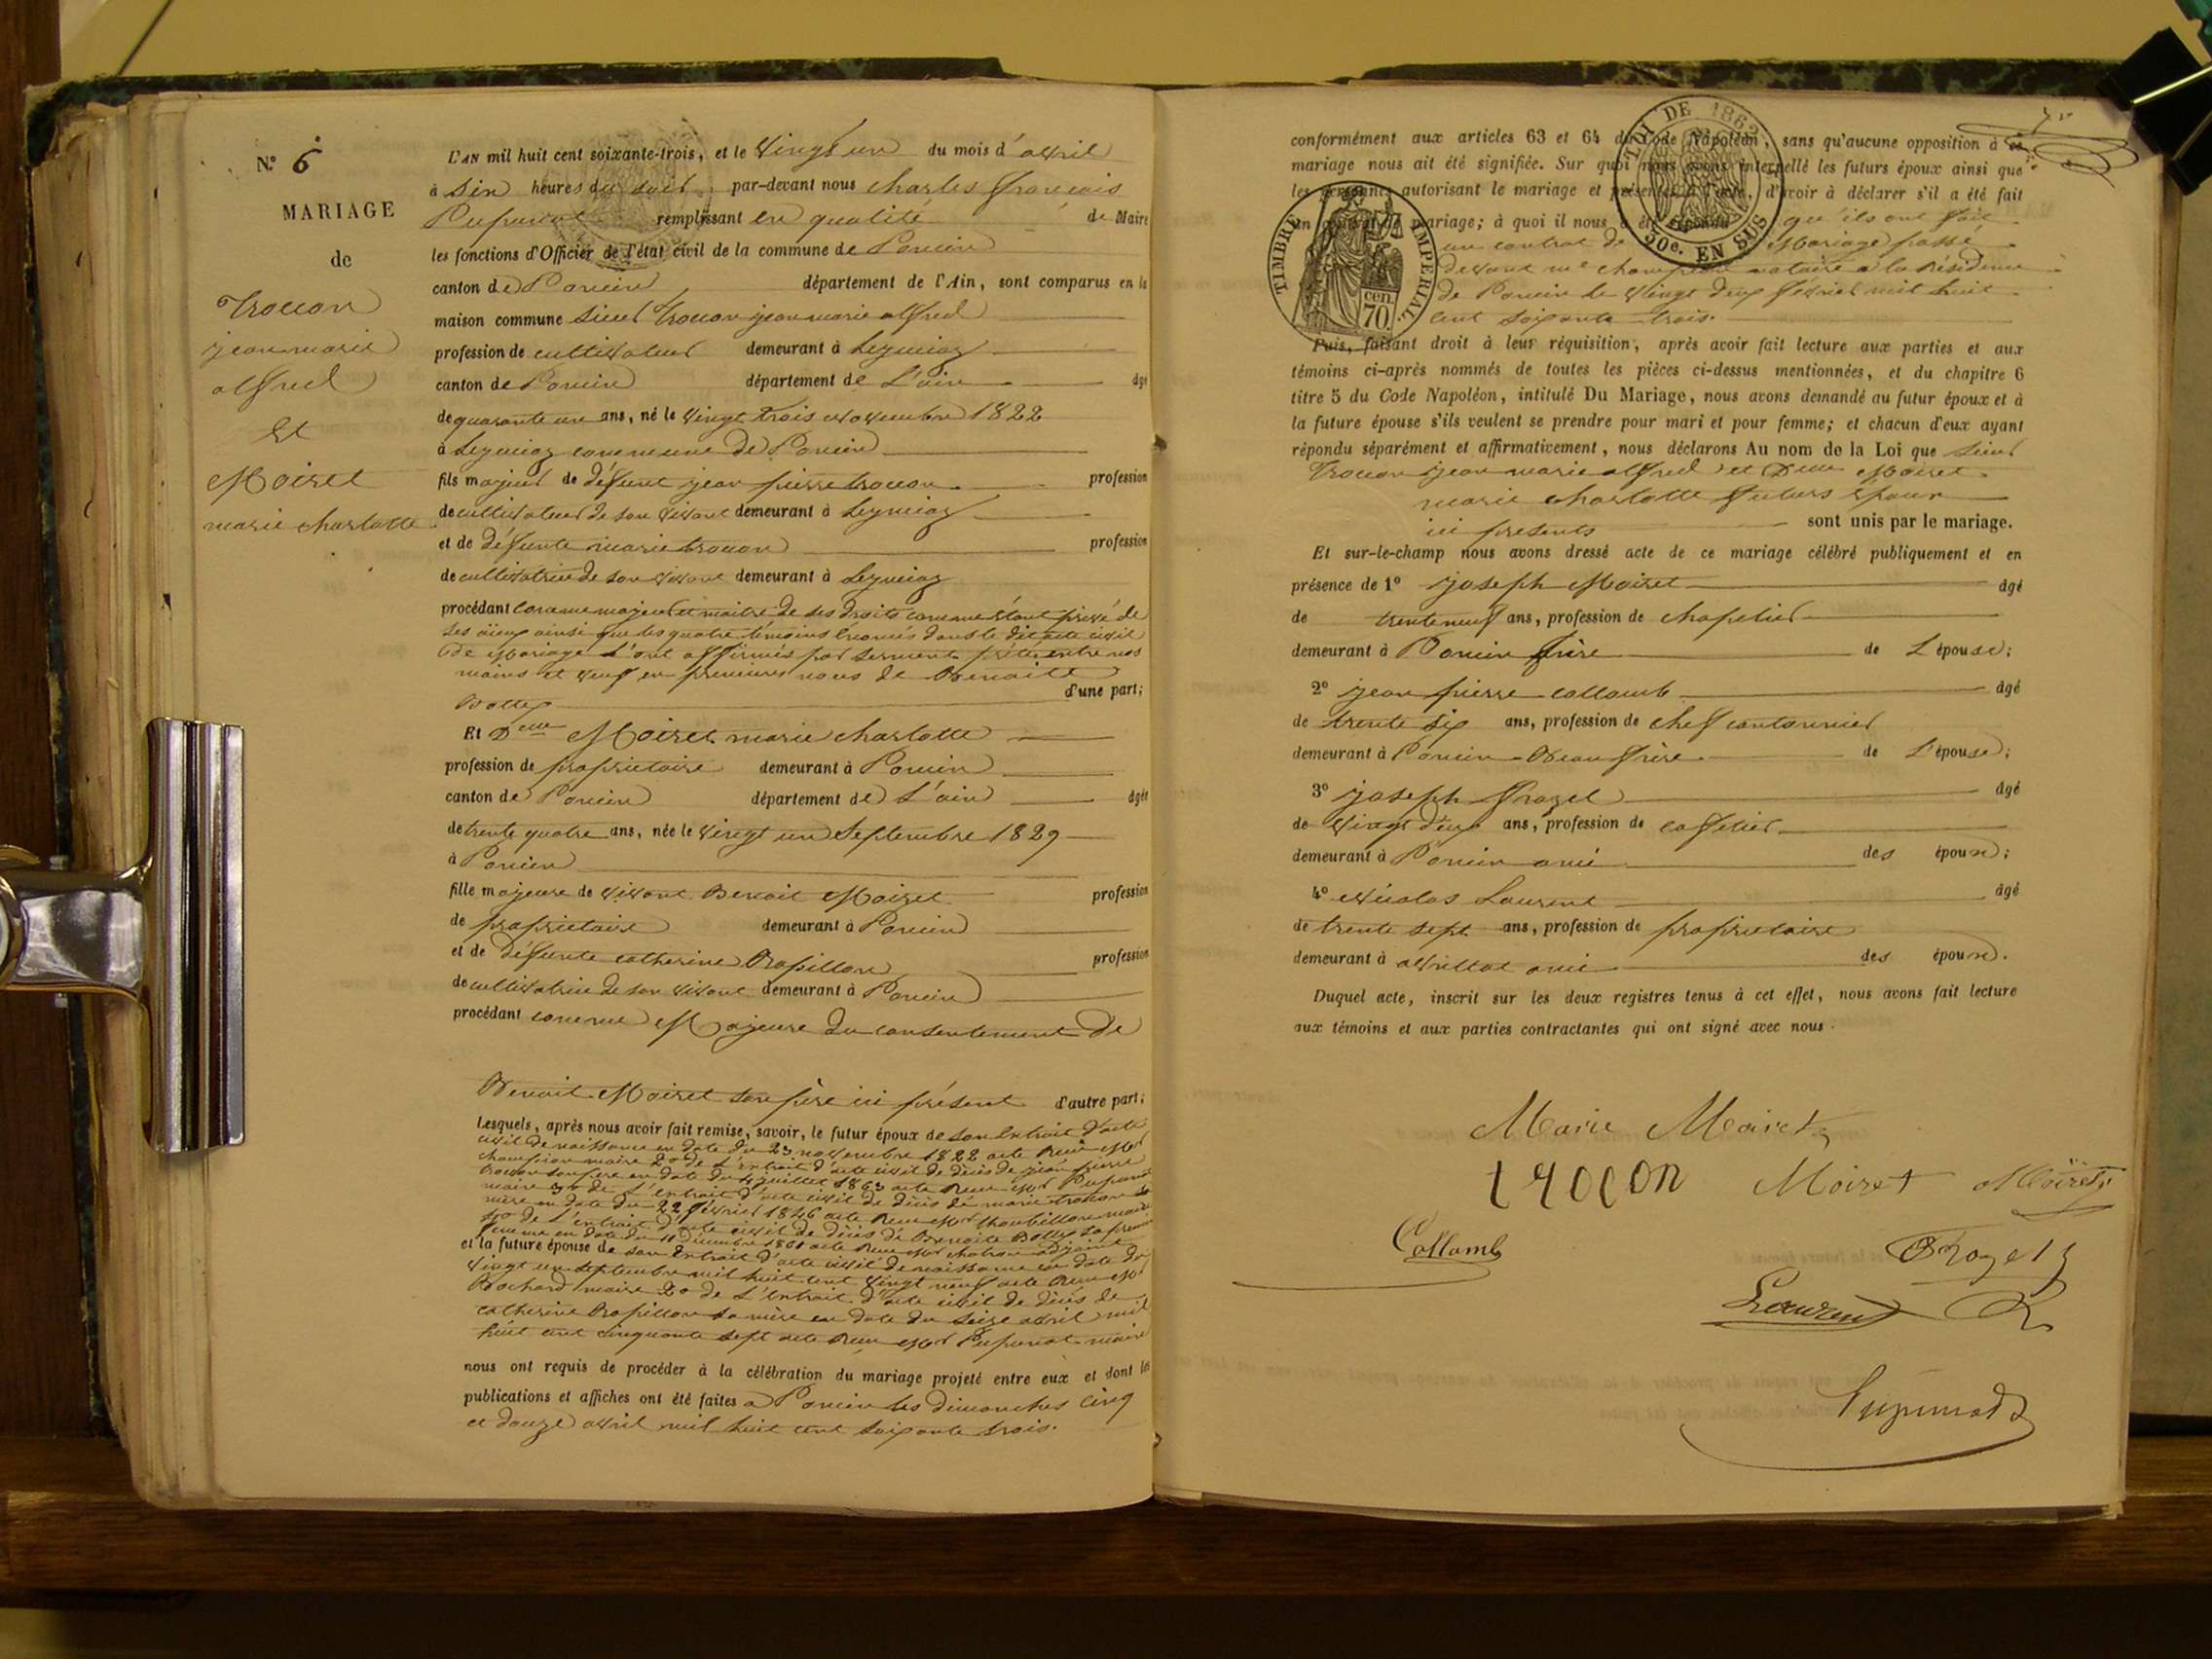 N.° 6
MARIAGE
de
Trocon
jean marie
alfred
Et
Moiret
marie charlotte
L'AN mil huit cent soixante-trois, et le vingt un du mois d'avril
à Six heures du soir par-devant nous charles françois
Pupunat remplissant en qualité de Maire
les fonctions d'Officier de l'état civil de la commune de Poncin
canton de Poncin département de l'Ain, sont comparus en la
maison commune Sieur Trocon jean marie alfred
profession de cultivateur demeurant à Leymiaz
canton de Poncin département de L'ain âgé
de quarante un ans, né le vingt trois novembre 1822
à Leymiaz commune de Poncin
fils majeur de défunt jean pierre trocon profession
de cultivateur de son vivant demeurant à Leymiaz
et de défunte marie trocon profession
de cultivatrice de son vivant demeurant à Leymiaz
procédant comme majeur et maitre de ses droits comme étant privé de
ses aïeux ainsi que les quatre témoins només dans le dit acte civil
de Mariage l'ont affirmés par serment prêté entre nos
mains et veuf en premières noces de Benoite
Bollex d'une part;
Et Delle Moiret marie charlotte
profession de propriétaire demeurant à Poncin
canton de Poncin département de L'ain âgée
de trente quatre ans, née le vingt un Septembre 1829
à Poncin
fille majeure de vivant Benoit Moiret profession
de propriétaire demeurant à Poncin
et de défunte catherine Rapillon profession
de cultivatrice de son vivant demeurant à Poncin
procédant comme Majeure du consentement de
Benoit Moiret son père ici présent d'autre part;
Lesquels, après nous avoir fait remise, savoir, le futur époux de son Extrait d'acte
civil de naissance en date du 23 novembre 1822 acte Reçu Mr
champion maire 2o de L'extrait d'acte civil de décès de jean pierre
trocon son père en date du 4 juillet 1863 acte Reçu Mr Pupunat
maire 3o de L'extrait d'acte civil de décès de marie trocon sa
mère en date du 22 février 1846 acte Reçu Mr maire
4o de L'extrait d'acte civil de décès de Benoite Bollex sa première
femme en date du 11 Décembre 1861 acte Reçu Mr adjoint
et la future épouse de son Extrait d'acte civil de naissance en date du
vingt un septembre mil huit cent vingt neuf acte Reçu Mr
Bochard maire 2o de L'Extrait d'acte civil de décès de
catherine Rapillon sa mère en date du Seize avril mil
huit cent cinquante sept acte Reçu Mr Pupunat maire
nous ont requis de procéder à la célébration du mariage projeté entre eux et dont les
publications et affiches ont été faites a Poncin les dimanches cinq
et douze avril mil huit cent soixante trois.
conformément aux articles 63 et 64 du Code Napoléon, sans qu'aucune opposition à ce
mariage nous ait été signifiée. Sur quoi nous avons interpellé les futurs époux ainsi que
les personnes autorisant le mariage et présentes à l'acte, d'avoir à déclarer s'il a été fait
un contrat de mariage; à quoi il nous a été répondu qu'ils ont fait
un contrat de Mariage passé
devant me champion notaire a la Résidence
de Poncin le vingt deux fevrier mil huit
cent soixante trois.
LOI DE 1862
50c. EN SUS
TIMBRE IMPERIAL
70 cen.
Puis, faisant droit à leur réquisition, après avoir fait lecture aux parties et aux
témoins ci-après nommés de toutes les pièces ci-dessus mentionnées, et du chapitre 6
titre 5 du Code Napoléon, intitulé Du Mariage, nous avons demandé au futur époux et à
la future épouse s'ils veulent se prendre pour mari et pour femme; et chacun d'eux ayant
répondu séparément et affirmativement, nous déclarons Au nom de la Loi que Sieur
Trocon jean marie alfred et Delle Moiret
marie charlotte futurs Epoux
ici présents sont unis par le mariage.
Et sur-le-champ nous avons dressé acte de ce mariage célébré publiquement et en
présence de 1° joseph Moiret âgé
de trente neuf ans, profession de chapelier
demeurant à Poncin frère de L'épouse;
2° jean pierre collomb âgé
de trente six ans, profession de chef cantonnier
demeurant à Poncin Beau frère de L'épouse;
3° joseph Frazel âgé
de vingt deux ans, profession de caffetier
demeurant à Poncin ami des époux;
4° Nicolas Laurent âgé
de trente sept ans, profession de propriétaire
demeurant à avrillat ami des époux.
Duquel acte, inscrit sur les deux registres tenus à cet effet, nous avons fait lecture
aux témoins et aux parties contractantes qui ont signé avec nous.
Marie Moiret
trocon Moiret Moiret
Collomb
Laurent
Pupunat